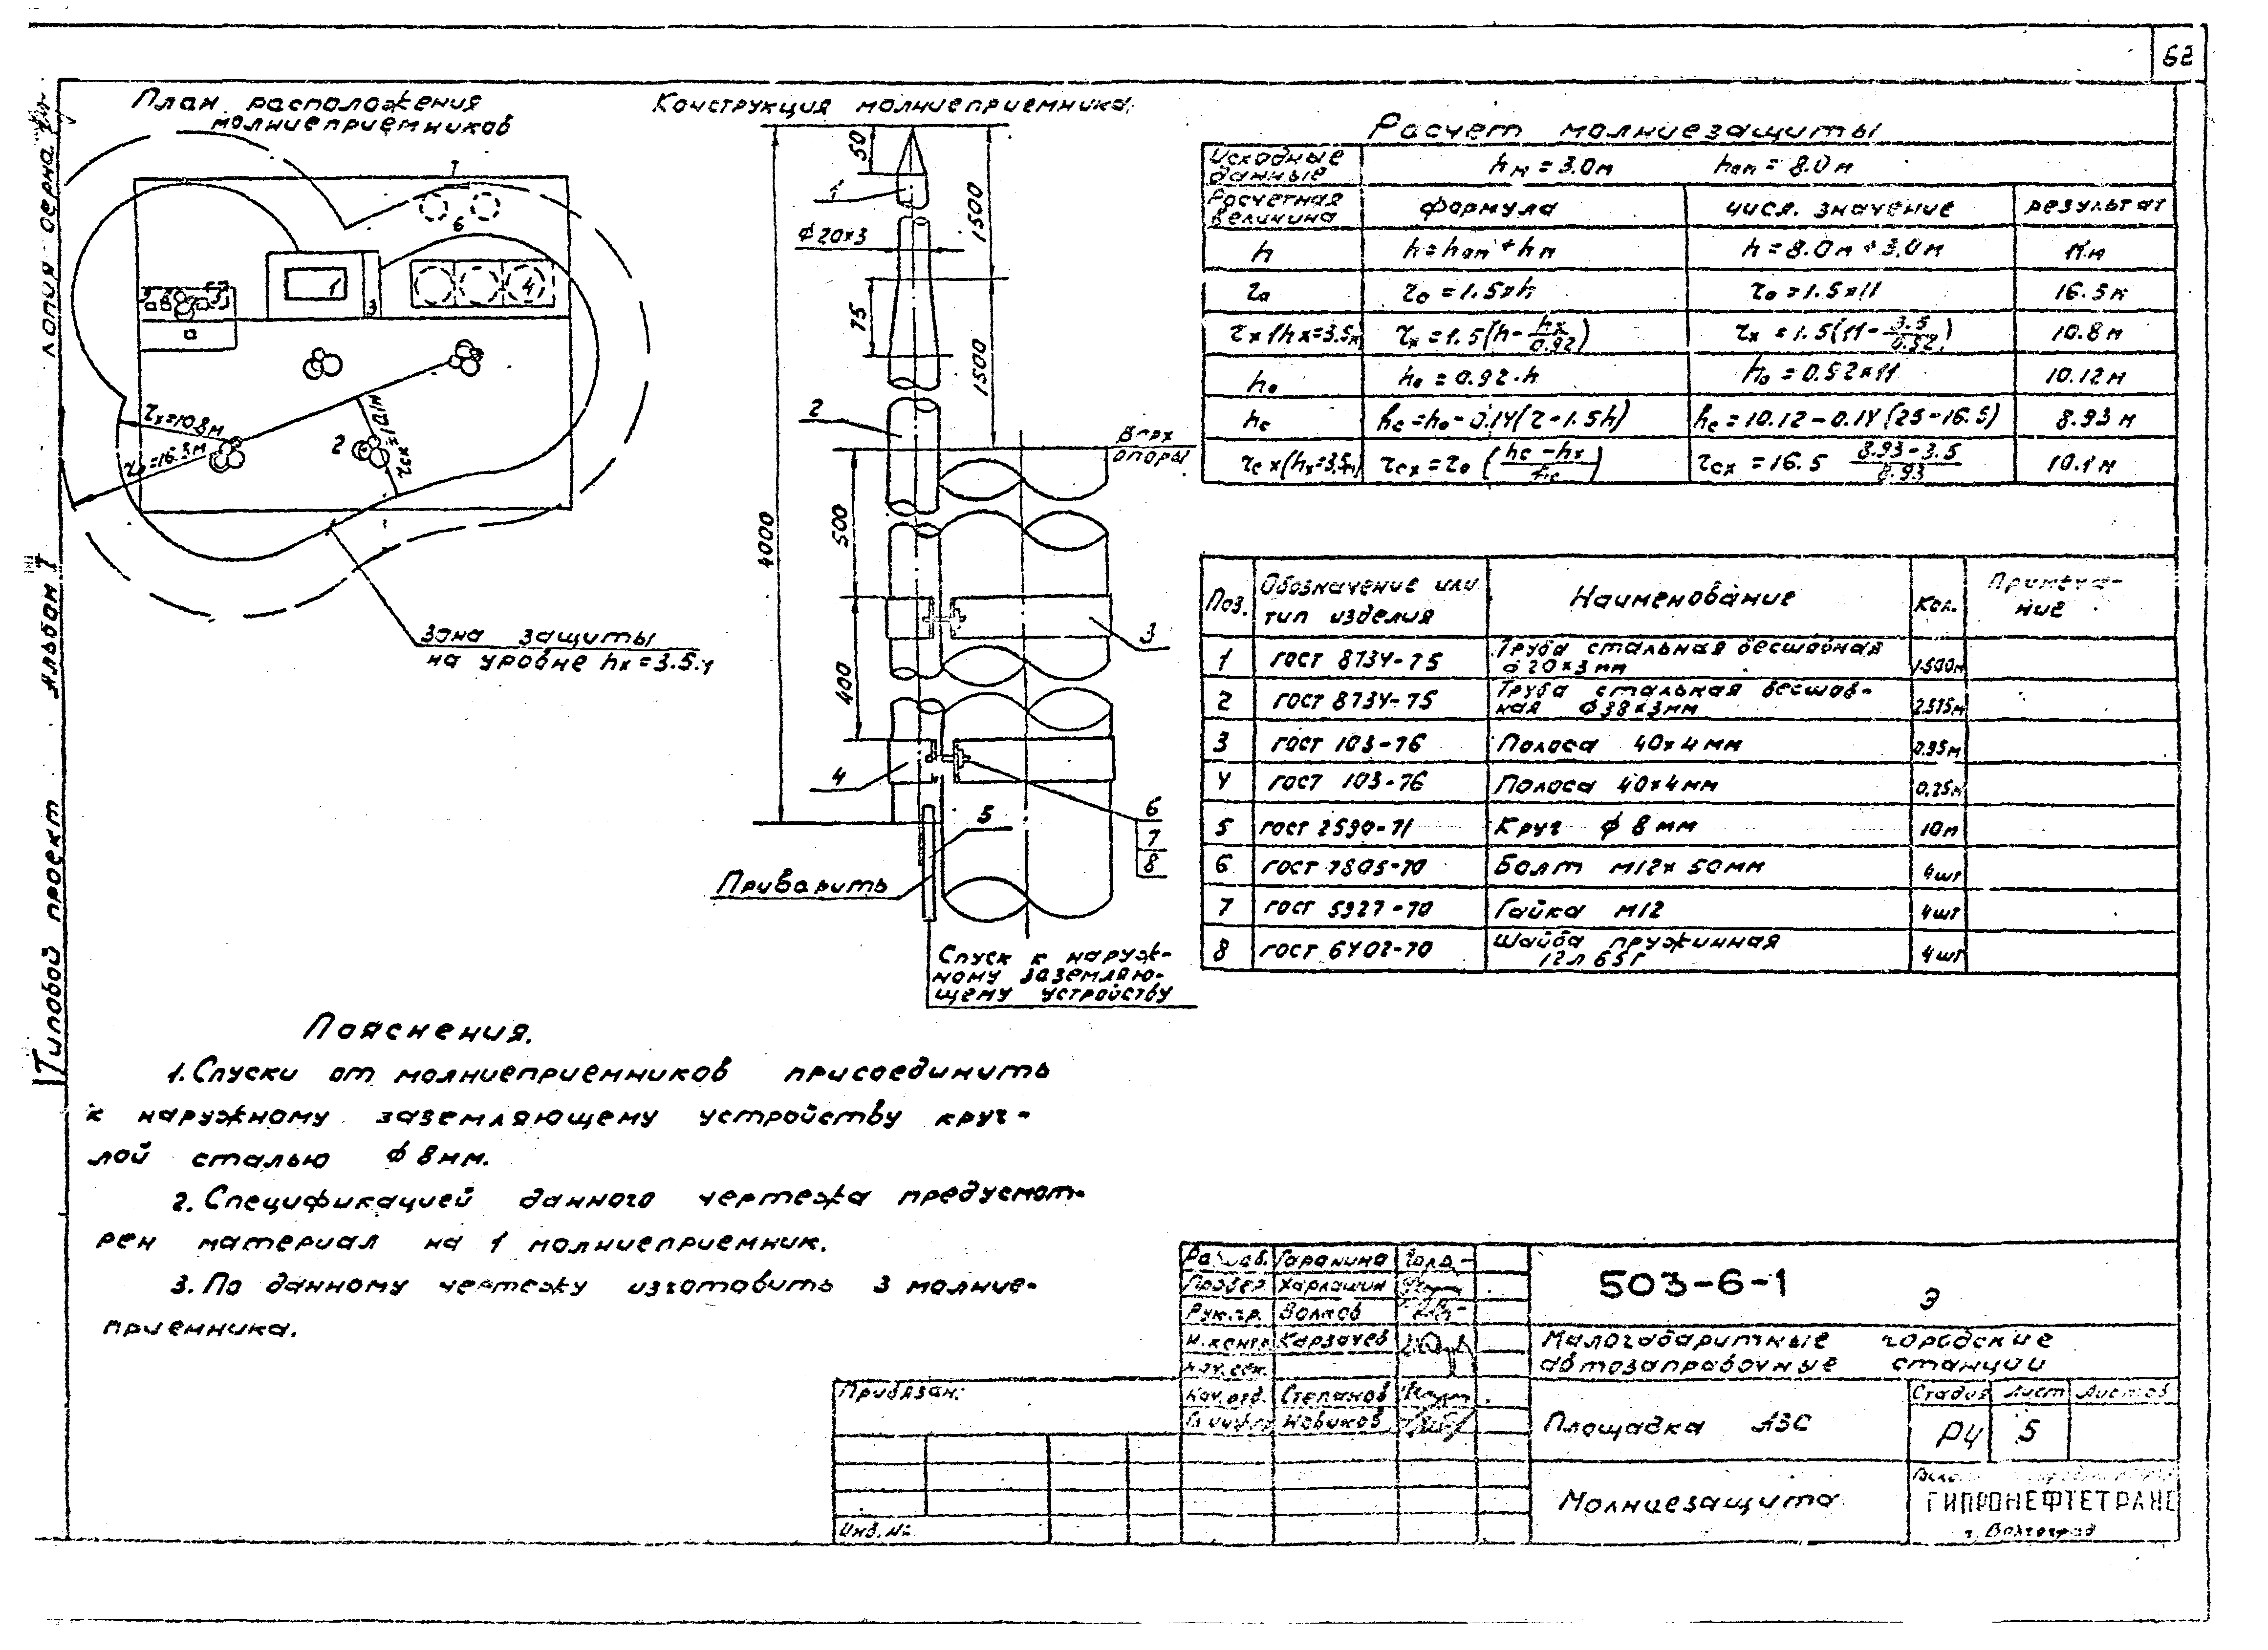 62
План расположения
молниеприемников
7
6
1
3
4
2
rx=10.8м
rо=16.5м
rсх=10.1м
Зона защиты
на уровне hx=3.5м
Конструкция молниеприемника
50
1
ϕ20×3
1500
75
1500
2
Верх
опоры
4000
500
400
3
4
5
6
7
8
Приварить
Спуск к наруж-
ному заземляю-
щему устройству
Расчет молниезащиты
Исходные данные hм = 3.0м hоп = 8.0м
Расчетная величина формула числ. значение результат
h h=hоп+hм h=8.0м+3.0м 11м
rо rо=1.5×h rо=1.5×11 16.5м
rx(hx=3.5м) rx=1.5(h-hx/0.92) rx=1.5(11-3.5/0.92) 10.8м
hо hо=0.92·h hо=0.92×11 10.12м
hс hс=hо-0.14(r-1.5h) hс=10.12-0.14(25-16.5) 8.93м
rсx(hx=3.5м) rсx=rо(hс-hx/hс) rсx=16.5 8.93-3.5/8.93 10.1м
Поз. Обозначение или тип изделия Наименование Кол. Примечание
1 ГОСТ 8734-75 Труба стальная бесшовная ϕ20×3мм 1.500м
2 ГОСТ 8734-75 Труба стальная бесшов-ная ϕ38×3мм 2.575м
3 ГОСТ 103-76 Полоса 40×4мм 0.95м
4 ГОСТ 103-76 Полоса 40×4мм 0.25м
5 ГОСТ 2590-71 Круг ϕ8мм 10м
6 ГОСТ 7805-70 Болт М12×50мм 4шт
7 ГОСТ 5927-70 Гайка М12 4шт
8 ГОСТ 6402-70 Шайба пружинная 12л 65Г 4шт
Пояснения.
1. Спуски от молниеприемников присоединить
к наружному заземляющему устройству круг-
лой сталью ϕ8мм.
2. Спецификацией данного чертежа предусмот-
рен материал на 1 молниеприемник.
3. По данному чертежу изготовить 3 молние-
приемника.
Разраб. Гаранина
Провер. Харлашин
Рук.гр. Волков
Н.контр Карзачев
Нач.сек.
Нач.отд. Степанов
Новиков
Привязан:
Инв.№
503-6-1 Э
Малогабаритные городские
автозаправочные станции
Площадка АЗС
Стадия Лист Листов
РЧ 5
Молниезащита
ГИПРОНЕФТЕТРАНС
г. Волгоград
Типовой проект Альбом I
копия верна